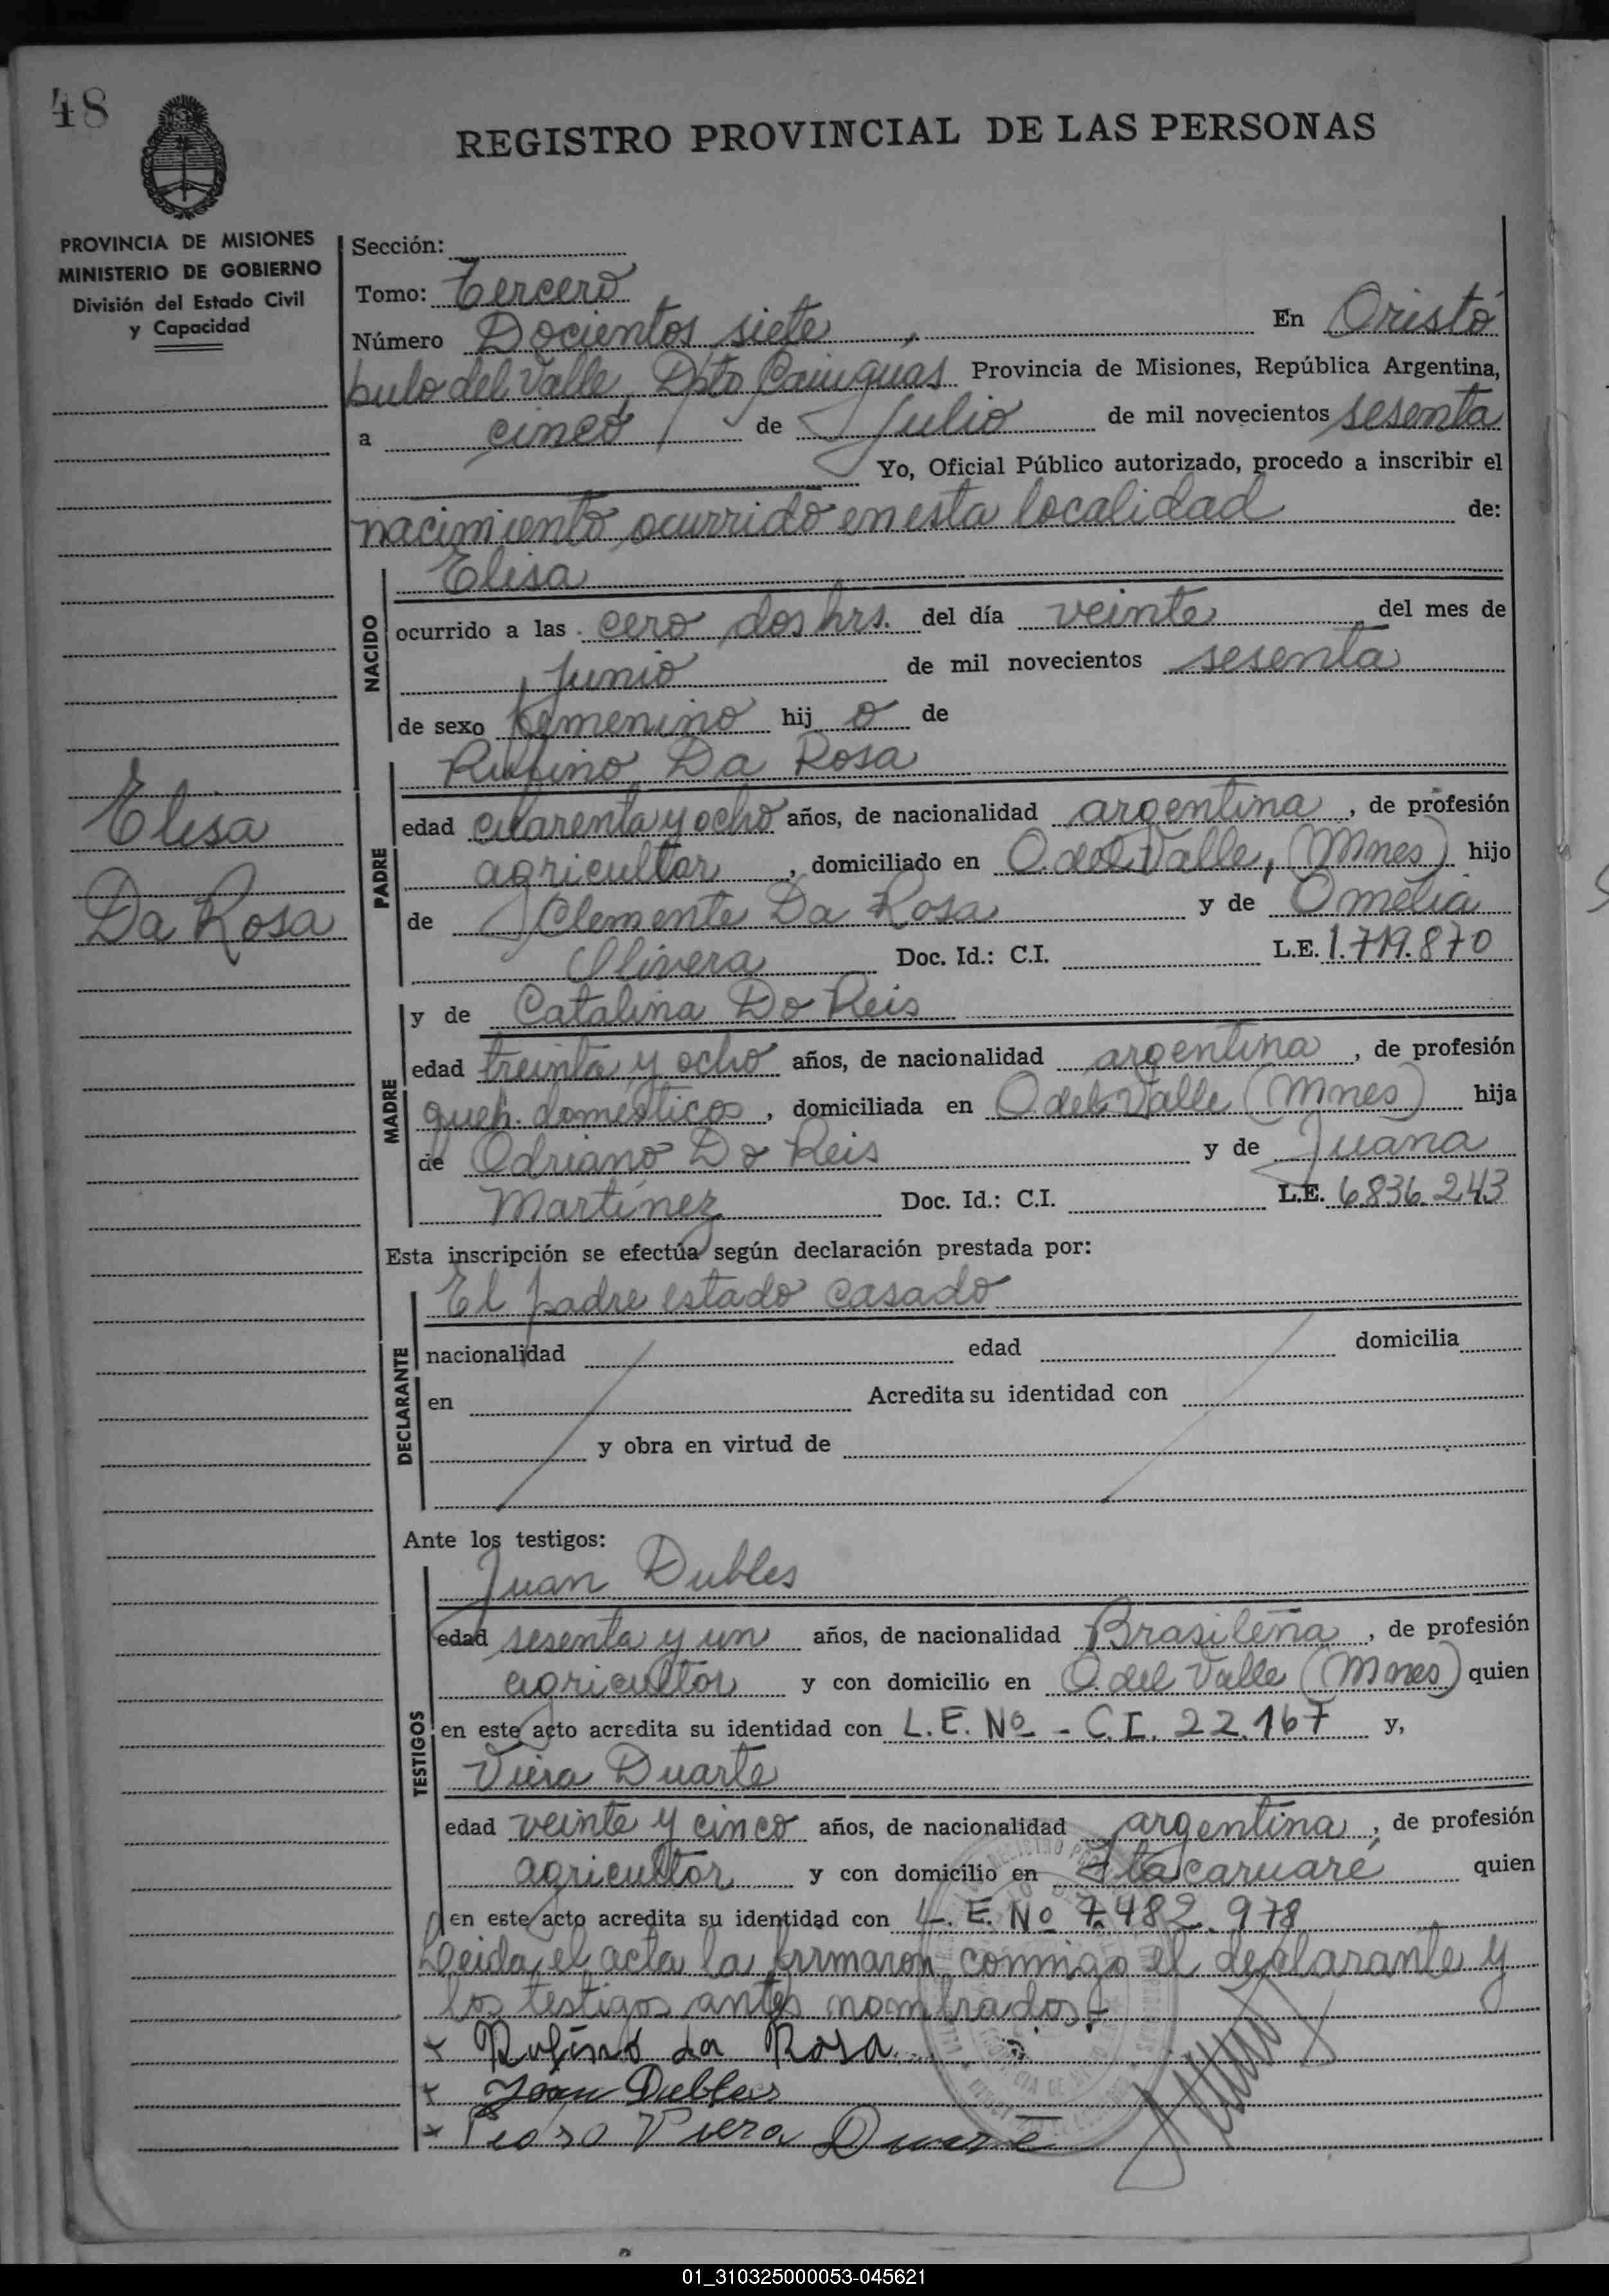 48
REGISTRO PROVINCIAL DE LAS PERSONAS
PROVINCIA DE MISIONES
MINISTERIO DE GOBIERNO
División del Estado Civil
y Capacidad
Sección:
Tomo: Tercero
Número Docientos siete, En Oristó
bulo del Valle, Dpto Cainguas Provincia de Misiones, República Argentina,
a cinco de Julio de mil novecientos sesenta
Yo, Oficial Público autorizado, procedo a inscribir el
nacimiento ocurrido en esta localidad de:
NACIDO
Elisa
ocurrido a las cero dos hrs. del día veinte del mes de
Junio de mil novecientos sesenta
de sexo femenino hij o de
PADRE
Rufino Da Rosa
edad cuarenta y ocho años, de nacionalidad argentina, de profesión
agricultor, domiciliado en O. del Valle, (Mnes) hijo
de Clemente Da Rosa y de Omelia
Olivera Doc. Id.: C.I. L.E. 1.719.870
Elisa
Da Rosa
MADRE
y de Catalina Do Reis
edad treinta y ocho años, de nacionalidad argentina, de profesión
queh. domésticos, domiciliada en O. del Valle (Mnes) hija
de Odriano Do Reis y de Juana
Martínez Doc. Id.: C.I. L.E. 6.836.243
Esta inscripción se efectúa según declaración prestada por:
DECLARANTE
El padre estado casado
nacionalidad edad domicilia
en Acredita su identidad con
y obra en virtud de
Ante los testigos:
TESTIGOS
Juan Dubles
edad sesenta y un años, de nacionalidad Brasileña, de profesión
agricultor y con domicilio en O. del Valle (Mnes) quien
en este acto acredita su identidad con L.E. Nº - C.I. 22.167 y,
Viera Duarte
edad veinte y cinco años, de nacionalidad argentina, de profesión
agricultor y con domicilio en Itacaruaré quien
en este acto acredita su identidad con L.E. Nº 7.482.978
Leida el acta la firmaron conmigo el declarante y
los testigos antes nombrados.-
x Rufino da Rosa
x Juan Dubles
x Viera Duarte
01_310325000053-045621